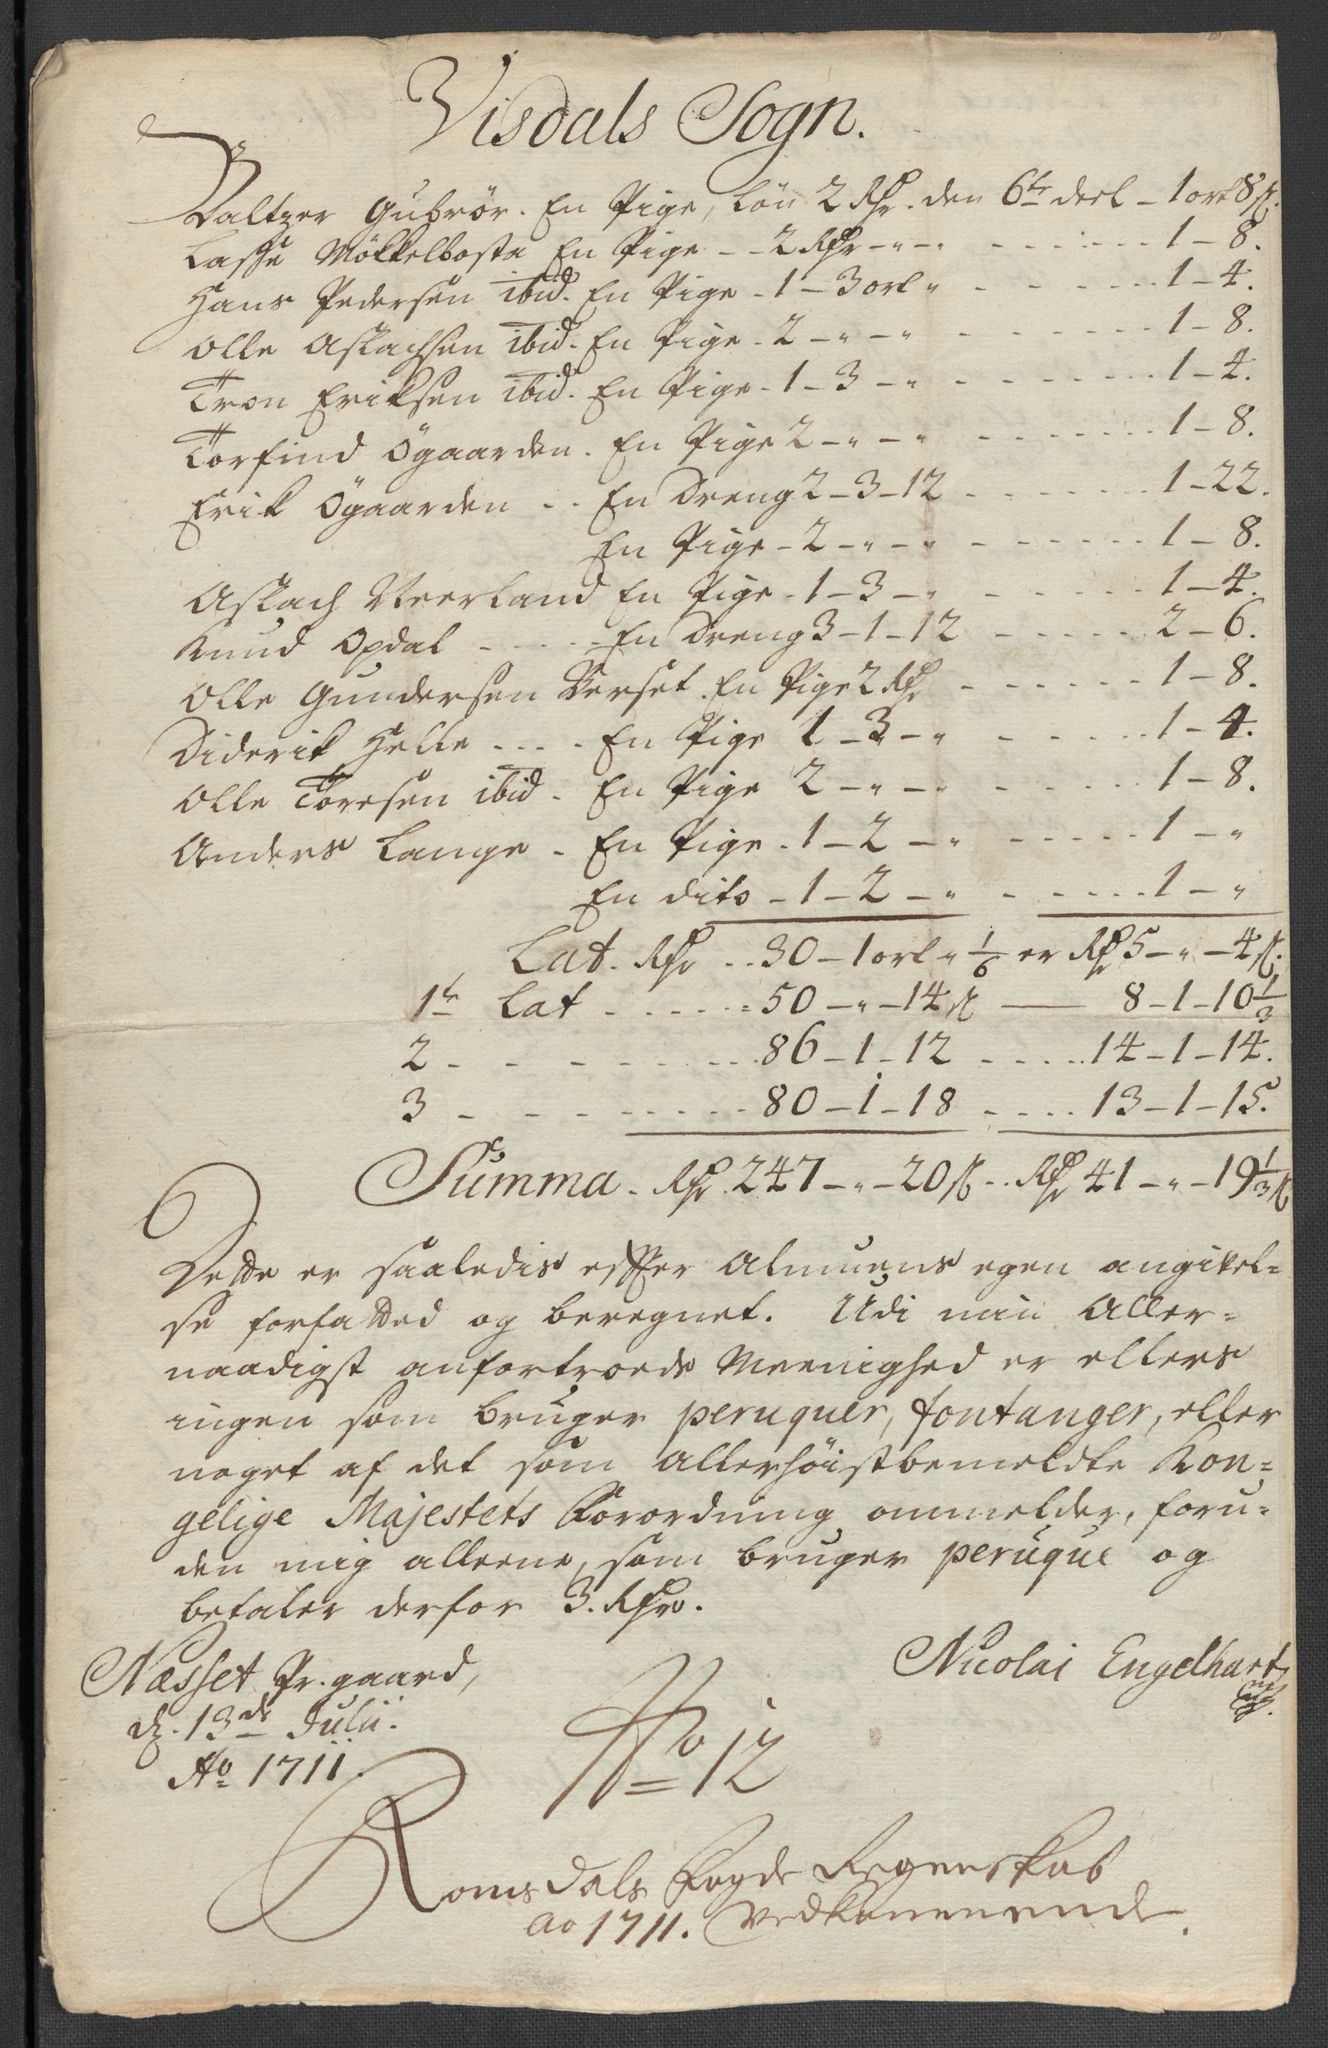 Visdals Sogn.
Baltzer Gubrør. En Pige, løn 2 Rdr. den 6te deel - 1 ort 8 s.
Lasse Møkkelbosta En Pige - - 2 Rdr - " - " - - - - 1 - 8.
Hans Pedersen ibid. En Pige - 1 - 3 ort " - - - - 1 - 4.
Olle Aslachsen ibid. En Pige - 2 - " - " - - - - 1 - 8.
Tron Eriksen ibid. En Pige - 1 - 3 - " - - - - 1 - 4.
Torfind Øgaarden. En Pige 2 - " - " - - - - 1 - 8.
Erik Øgaarden - - En Dreng 2 - 3 - 12 - - - - 1 - 22.
En Pige - 2 - " - " - - - - 1 - 8.
Aslach Nerland En Pige - 1 - 3 - " - - - - 1 - 4.
Knud Opdal - - - - En Dreng 3 - 1 - 12 - - - - 2 - 6.
Olle Gundersen Verset. En Pige 2 Rdr - - - - 1 - 8.
Diderik Helle - - - - En Pige 1 - 3 - " - - - - 1 - 4.
Olle Toresen ibid - En Pige 2 - " - " - - - - 1 - 8.
Anders Lange - En Pige - 1 - 2 - " - - - - 1 - "
En dito - 1 - 2 - " - - - - 1 - "
Lat. Rdr - - 30 - 1 ort " 1/6 er Rdr 5 - " - 4 s.
1te Lat - - - - 50 - " - 14 s — 8 - 1 - 10 1/3
2 - - - - 86 - 1 - 12 - - - - 14 - 1 - 14.
3 - - - - 80 - 1 - 18 - - - - 13 - 1 - 15.
Summa - Rdr 247 - " - 20 s - - Rdr 41 - " - 19 1/3 s
Dette er saaledis effter Almuens egen angivel=
se forfatted og beregnet. Udi min Aller=
naadigst anfortroede Meenighed er ellers
ingen som bruger peruquer, fontanger, eller
noget af det som allerhøistbemeldte Kon=
gelige Majestets Forordning ommelder, foru=
den mig alleene, som bruger peruque og
betaler derfor 3. Rdr.
Nicolai Engelhart
Næsset Pr. gaard,
d. 13de Julii.
Ao 1711.
No 12
Romsdals Fogde Regenskab
ao 1711. Vedkommende.